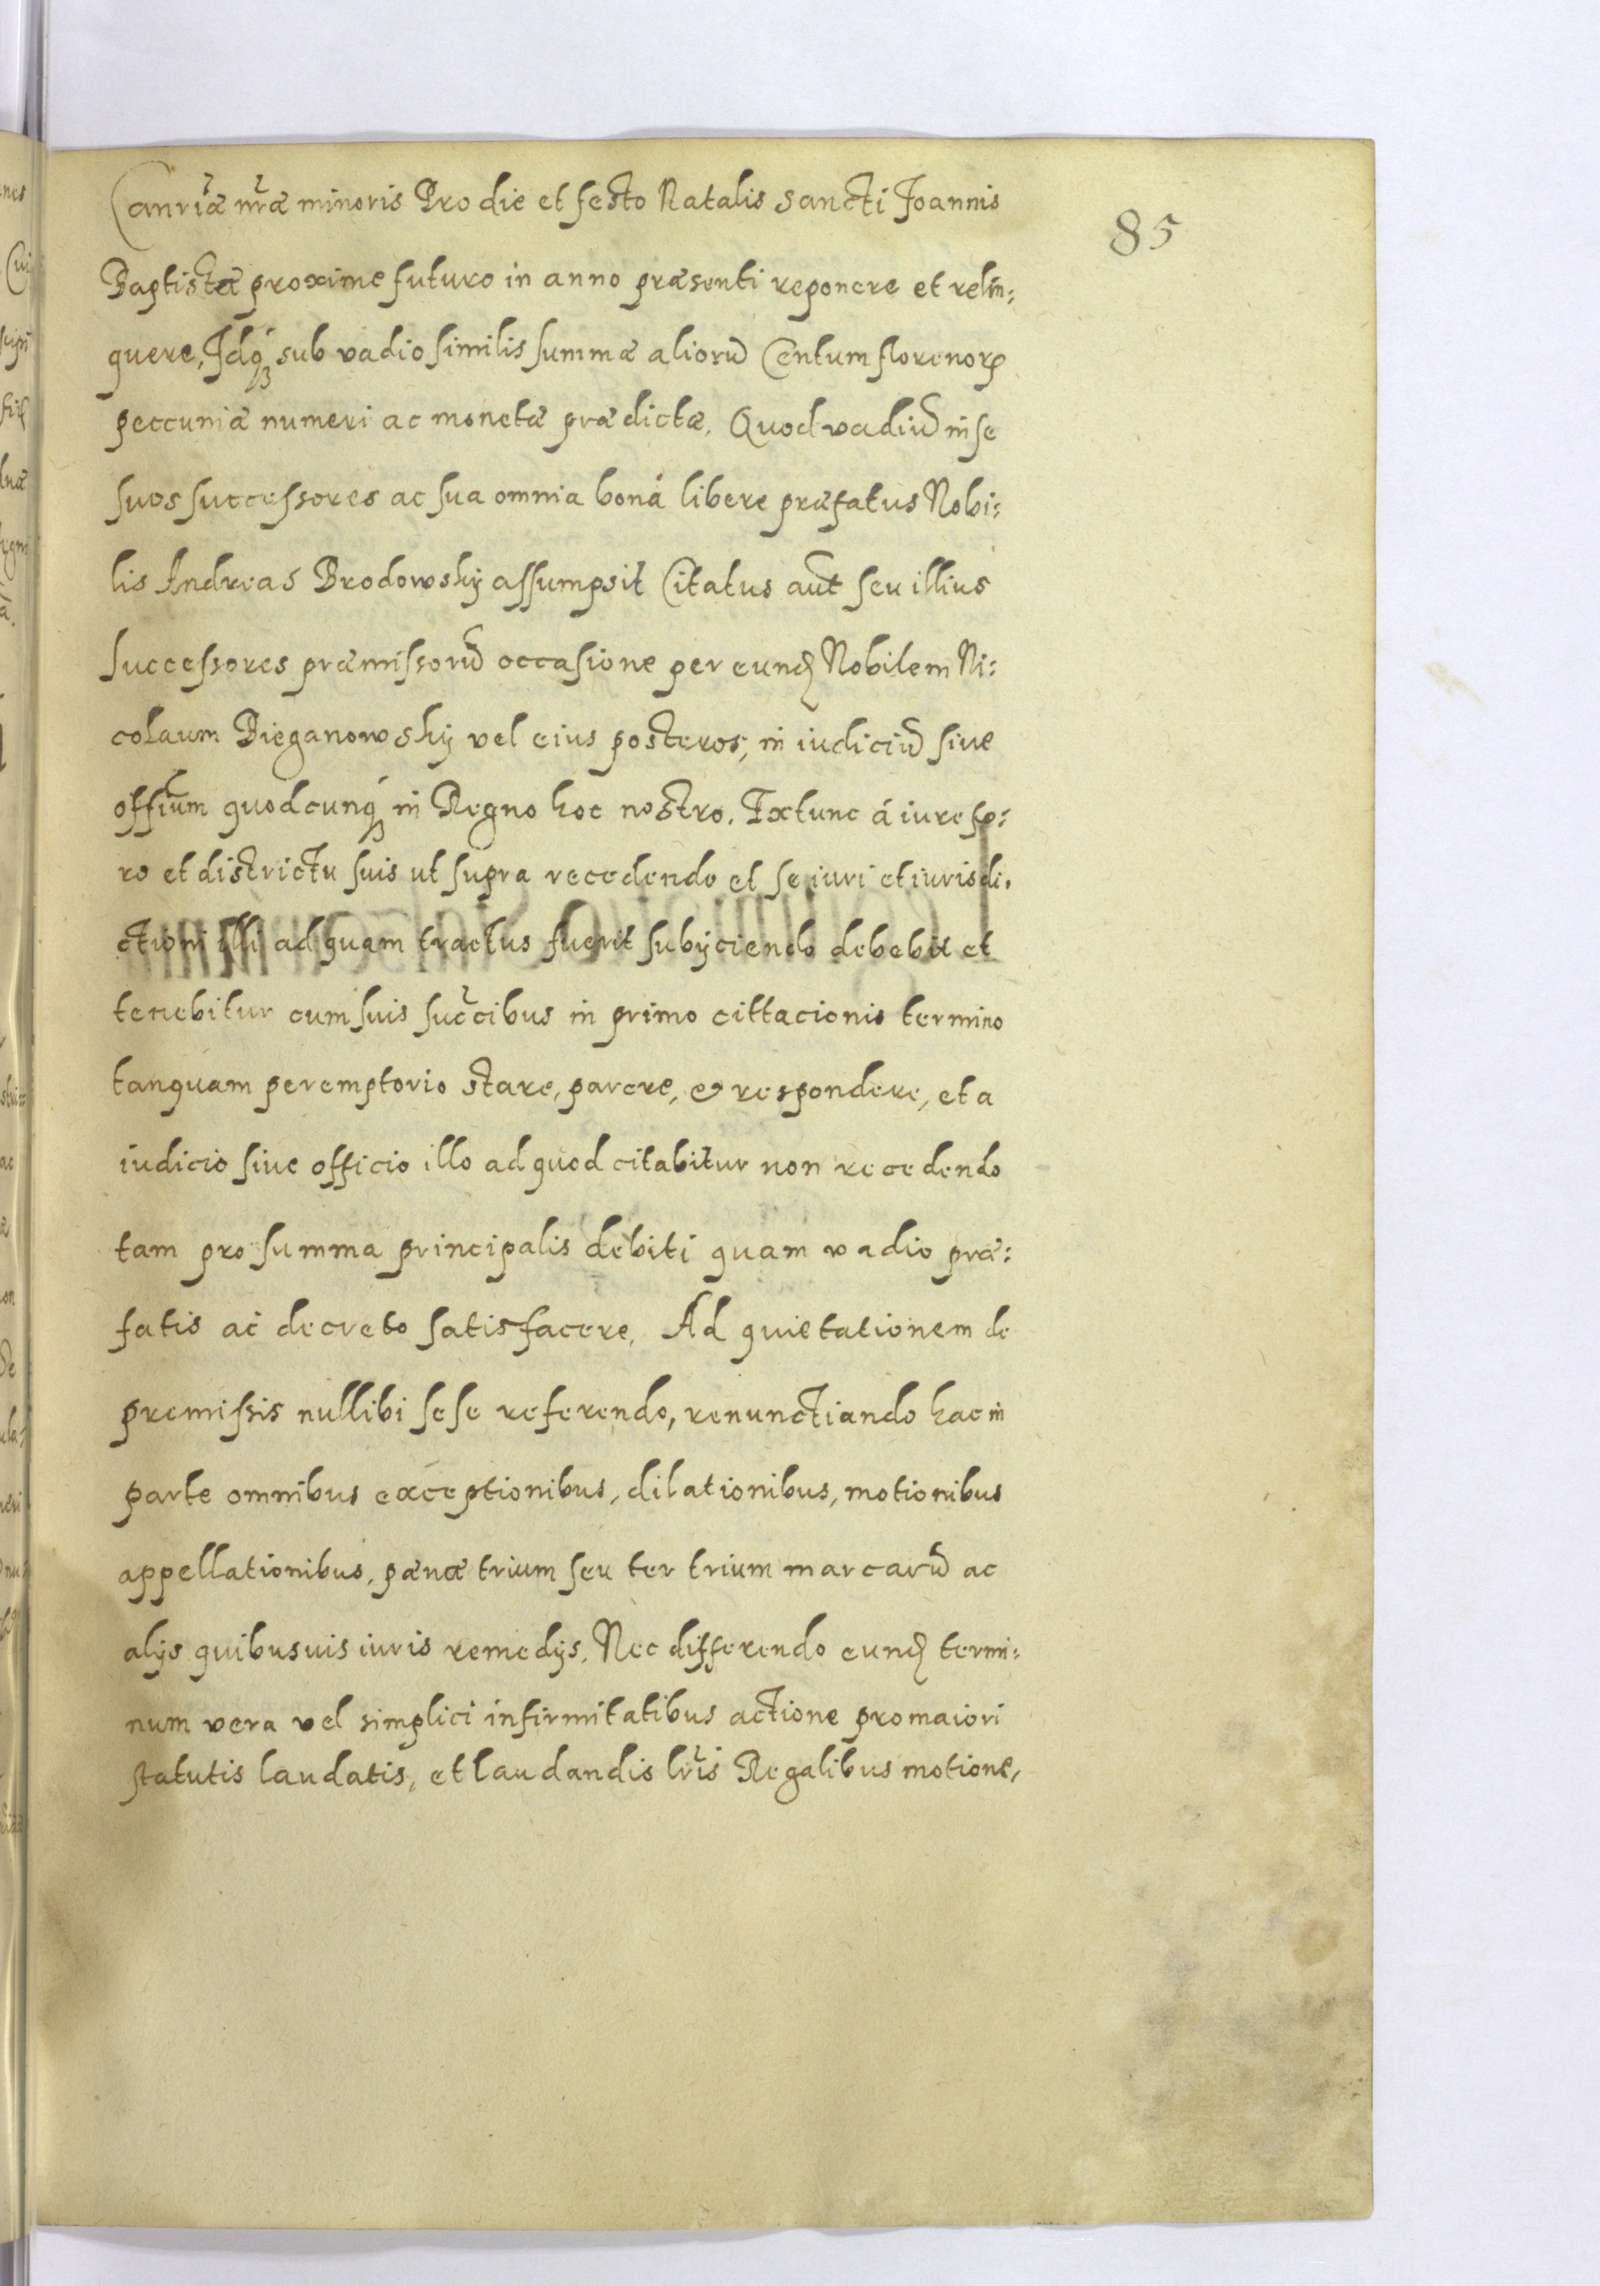 85
Canriæ nræ minoris Pro die et festo Natalis sancti Joannis
Baptistæ proxime futuro in anno præsenti reponere et relin:
quere, Jdq́ꝫ sub vadio similis summæ aliorū Centum florenorꝝ
peccuniæ numeri ac monetæ prædictæ. Quod vadiū in se
suos successores ac sua omnia boná libere præfatus Nobi:
lis Andreas Brodowsky assumpsit Citatus aūt seu illius
successores præmissorū occasione per eundꝫ Nobilem Ni:
colaum Bieganowsky vel eius posteros, in iudiciū siue
offium quodcunq́ꝫ in Regno hoc nostro. Extunc á iure fo:
ro et districtu suis ut supra recedendo et se iuri et iurisdi:
ctioni illi ad quam tractus fuerit subÿciendo debebit et
tenebitur cum suis succibus in primo cittacionis termino
tanquam peremptorio stare, parere, & respondere, et a
iudicio siue officio illo ad quod citabitur non recedendo
tam pro summa principalis debiti quam vadio præ:
fatis ac decreto satisfacere. Ad quietationem de
premissis nullibi sese referendo, renunctiando hac in
parte omnibus exceptionibus, dilationibus, motionibus
appellationibus, pænæ trium seu ter trium marcarū ac
alÿs quibusuis iuris remedÿs. Nec differendo eundꝫ termi:
num vera vel simplici infirmitatibus actione pro maiori
statutis laudatis, et laudandis lris Regalibus motione,